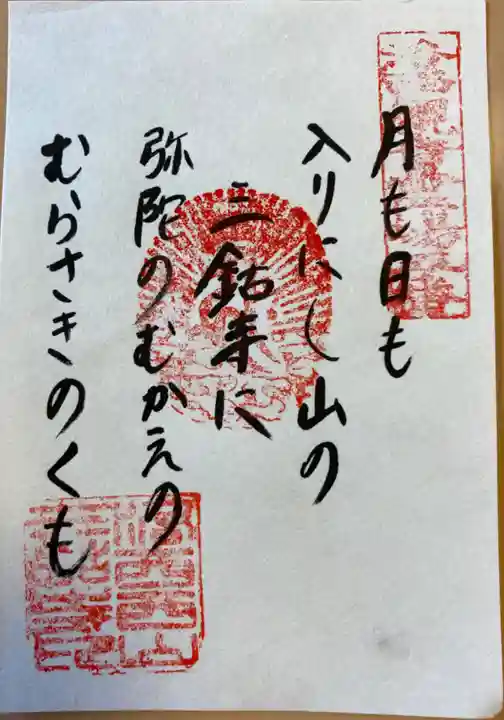 月も日も
入りにし山の
三鈷峯に
弥陀のむかえの
むらさきのくも